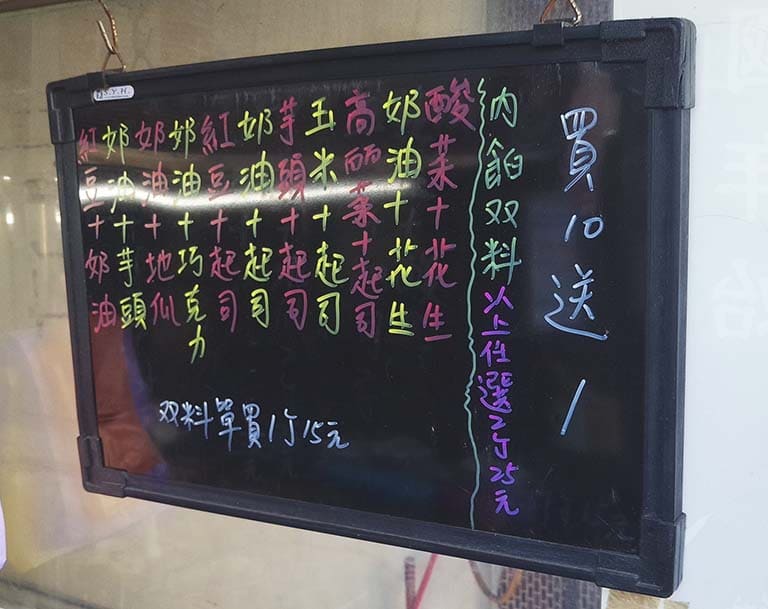 買10送1
内餡双料以上任選2个25元
酸菜+花生
奶油+花生
高丽菜+起司
玉米+起司
芋頭+起司
奶油+起司
紅豆+起司
奶油+巧克力
奶油+地瓜
奶油+芋頭
紅豆+奶油
双料單買1个15元
S.Y.H.